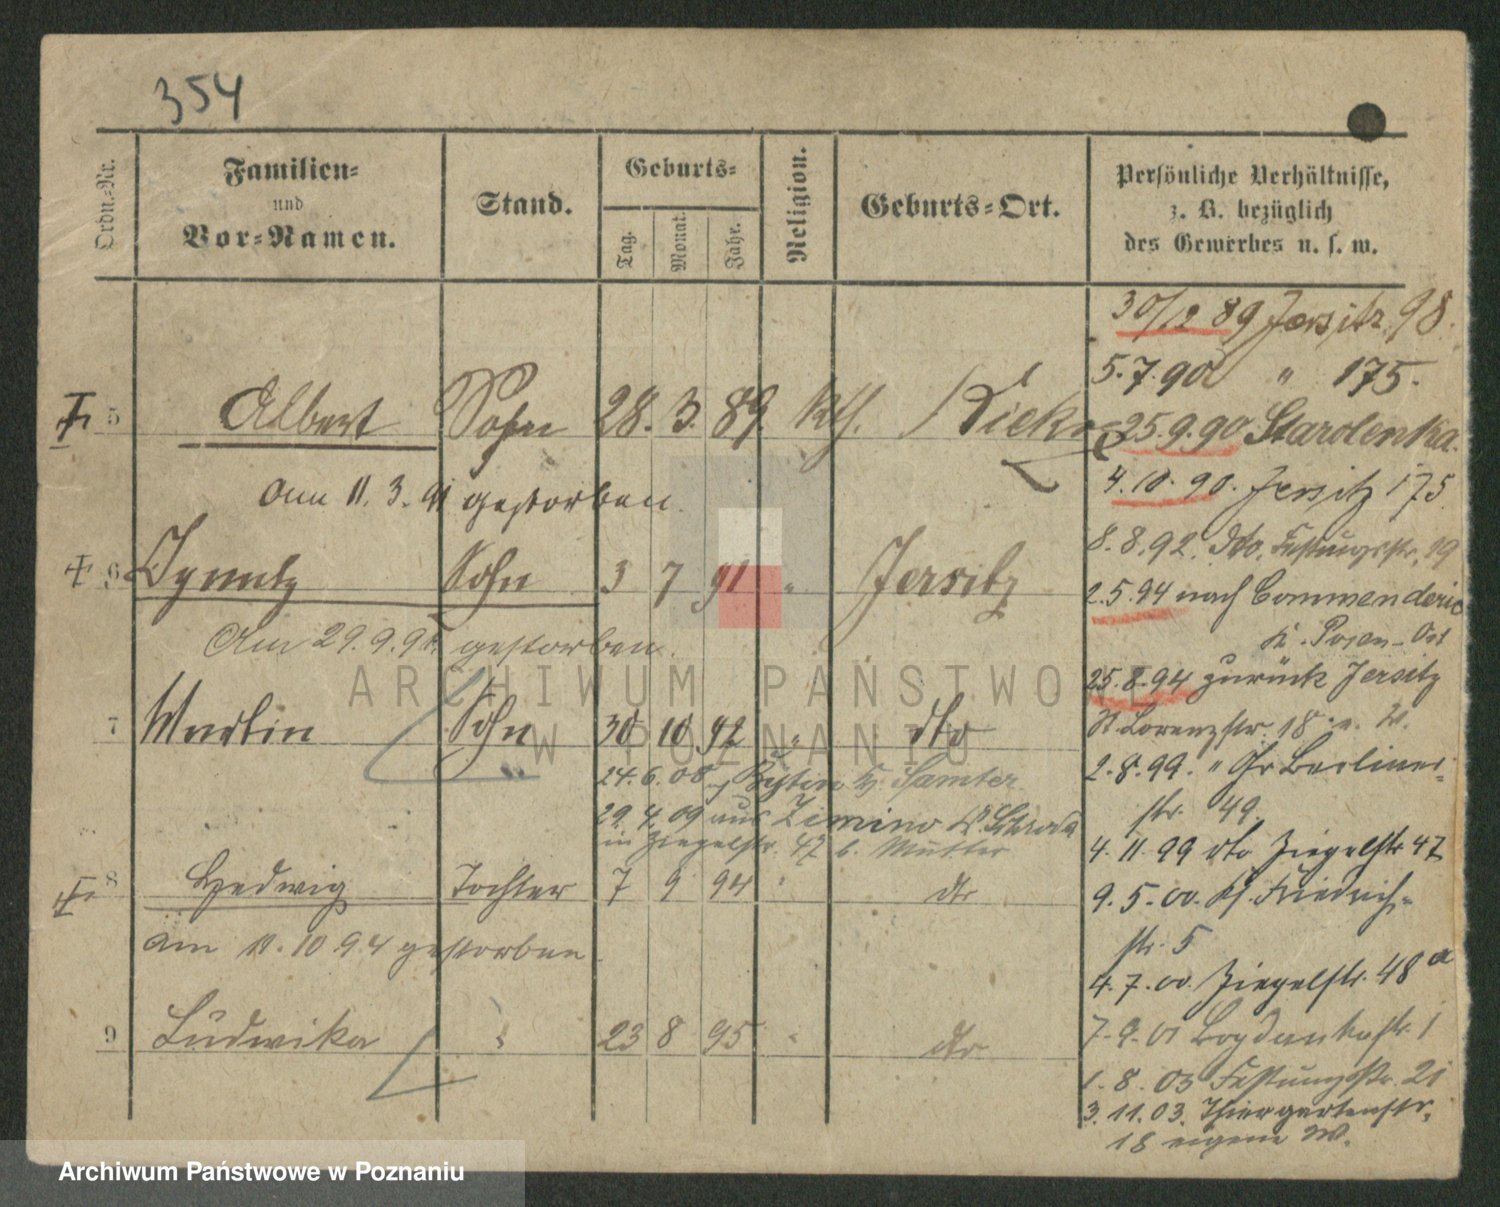 354
Ordn.-Nr.
Familien-
und
Vor-Namen.
Stand.
Geburts-
Tag.
Monat.
Jahr.
Religion.
Geburts-Ort.
Persönliche Verhältnisse,
z. B. bezüglich
des Gewerbes u. s. w.
30/12 89 Jersitz 98.
5.7.90 " 175.
5 Albert Sohn 28. 3. 89. kth. Kiekrz
25.9.90 Starolenka.
Am 11. 3. 91 gestorben.
4.10.90. Jersitz 175
8.8.92. dto. Festungsstr. 19
6 Ignatz Sohn 3 7 91 " Jersitz
2.5.94 nach Commenderie
K. Posen-Ost
Am 29.9.91. gestorben.
25.8.94 zurück Jersitz
7 Martin Sohn 30 10 92 " dto
St Lorenzstr. 18
24.6.08 Samter
2.8.99. " Gr Berliner-
str. 49.
29. 4. 09 aus Zimino K. Schroda
in Ziegelstr. 47 b. Mutter
4. 11. 99 dto Ziegelstr 47
8 Hedwig Tochter 7 9 94 " dto
9. 5. 00. Friedrich-
str. 5
am 11. 10 94 gestorben.
4. 7. 00. Ziegelstr. 48 a
9 Ludwika " 23 8 95 " dto
7. 9. 01 Bogdankastr. 1
1. 8. 03 Festungsstr. 21
3. 11. 03. Thiergartenstr.
18 eigene W.
ARCHIWUM PAŃSTWOWE
W POZNANIU
Archiwum Państwowe w Poznaniu